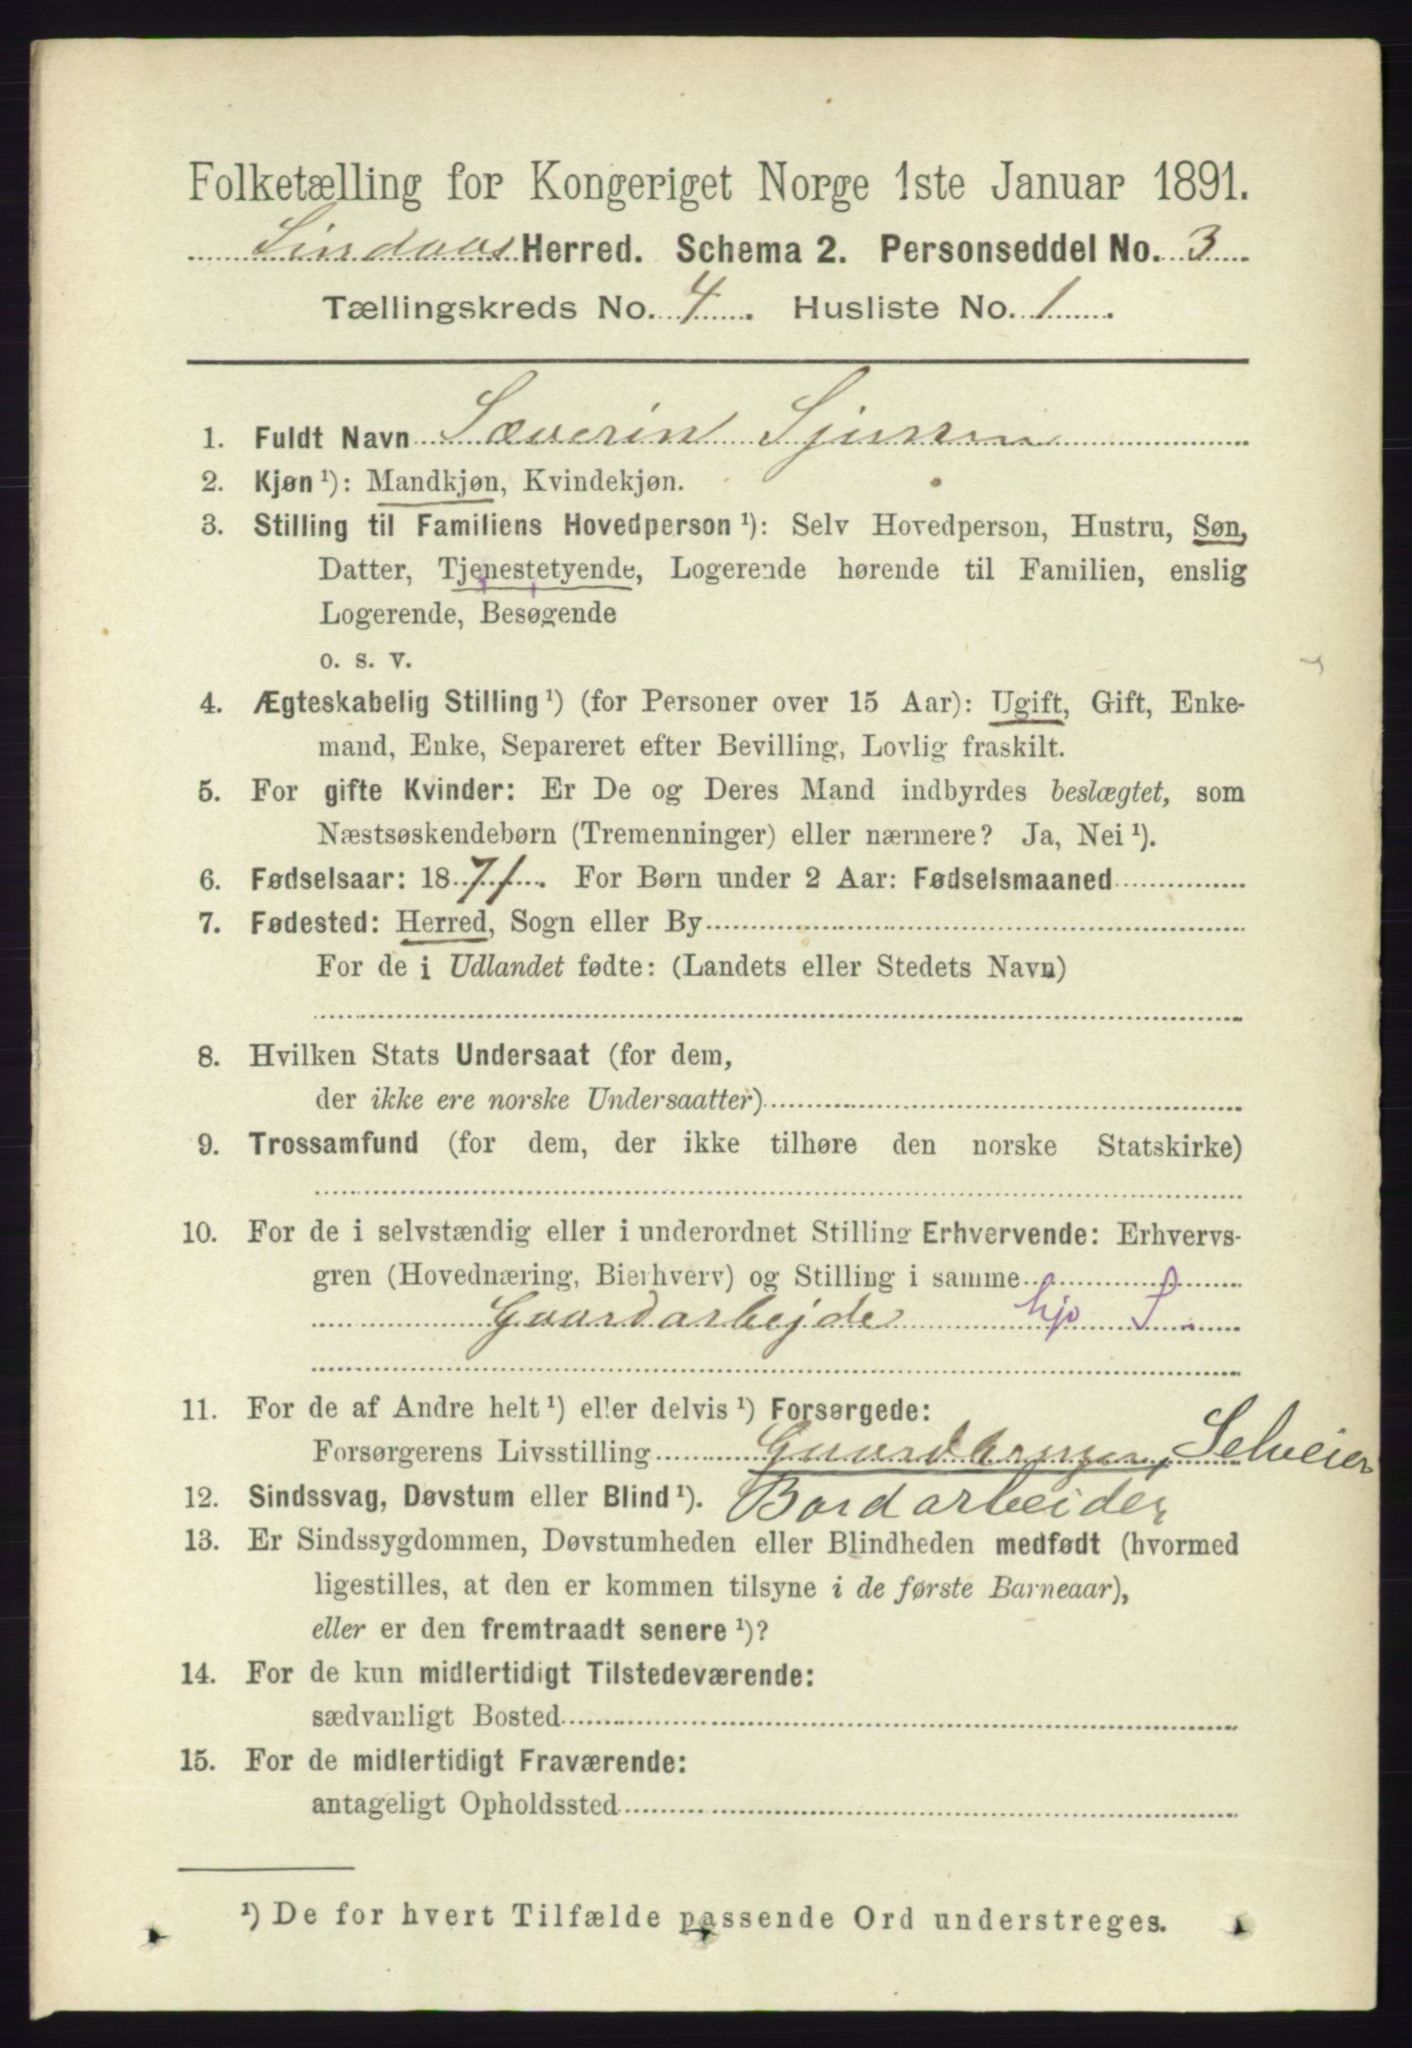 Folketælling for Kongeriget Norge 1ste Januar 1891.
Lindaas Herred. Schema 2. Personseddel No. 3
Tællingskreds No. 4. Husliste No. 1.
1. Fuldt Navn Severin Sjursen
2. Kjøn ¹): Mandkjøn, Kvindekjøn.
3. Stilling til Familiens Hovedperson ¹): Selv Hovedperson, Hustru, Søn,
Datter, Tjenestetyende, Logerende hørende til Familien, enslig
Logerende, Besøgende
o. s. v.
4. Ægteskabelig Stilling ¹) (for Personer over 15 Aar): Ugift, Gift, Enke-
mand, Enke, Separeret efter Bevilling, Lovlig fraskilt.
5. For gifte Kvinder: Er De og Deres Mand indbyrdes beslægtet, som
Næstsøskendebørn (Tremenninger) eller nærmere? Ja, Nei ¹).
6. Fødselsaar: 1871. For Børn under 2 Aar: Fødselsmaaned
7. Fødested: Herred, Sogn eller By
For de i Udlandet fødte: (Landets eller Stedets Navn)
8. Hvilken Stats Undersaat (for dem,
der ikke ere norske Undersaatter)
9. Trossamfund (for dem, der ikke tilhøre den norske Statskirke)
10. For de i selvstændig eller i underordnet Stilling Erhvervende: Erhvervs-
gren (Hovednæring, Bierhverv) og Stilling i samme
Gaardarbejde hjo S.
11. For de af Andre helt ¹) eller delvis ¹) Forsørgede:
Forsørgerens Livsstilling Gaardbruger, Selveier
12. Sindssvag, Døvstum eller Blind ¹). Bordarbeider
13. Er Sindssygdommen, Døvstumheden eller Blindheden medfødt (hvormed
ligestilles, at den er kommen tilsyne i de første Barneaar),
eller er den fremtraadt senere ¹)?
14. For de kun midlertidigt Tilstedeværende:
sædvanligt Bosted
15. For de midlertidigt Fraværende:
antageligt Opholdssted
¹) De for hvert Tilfælde passende Ord understreges.